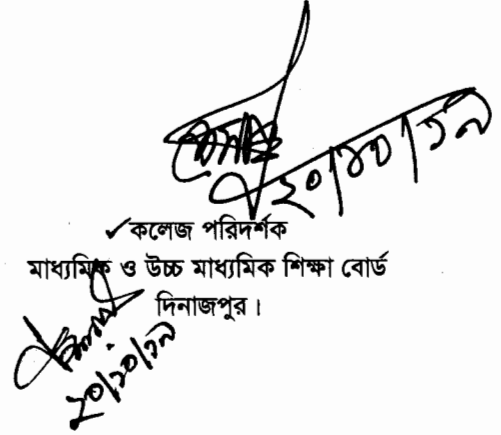 ২০/১০/১৯
✓ কলেজ পরিদর্শক
মাধ্যমিক ও উচ্চ মাধ্যমিক শিক্ষা বোর্ড
দিনাজপুর।
২০/১০/১৯